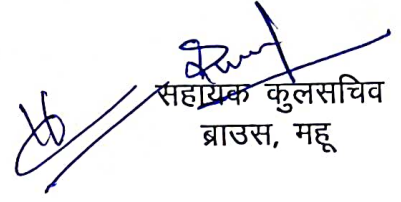 सहायक कुलसचिव
ब्राउस, महू